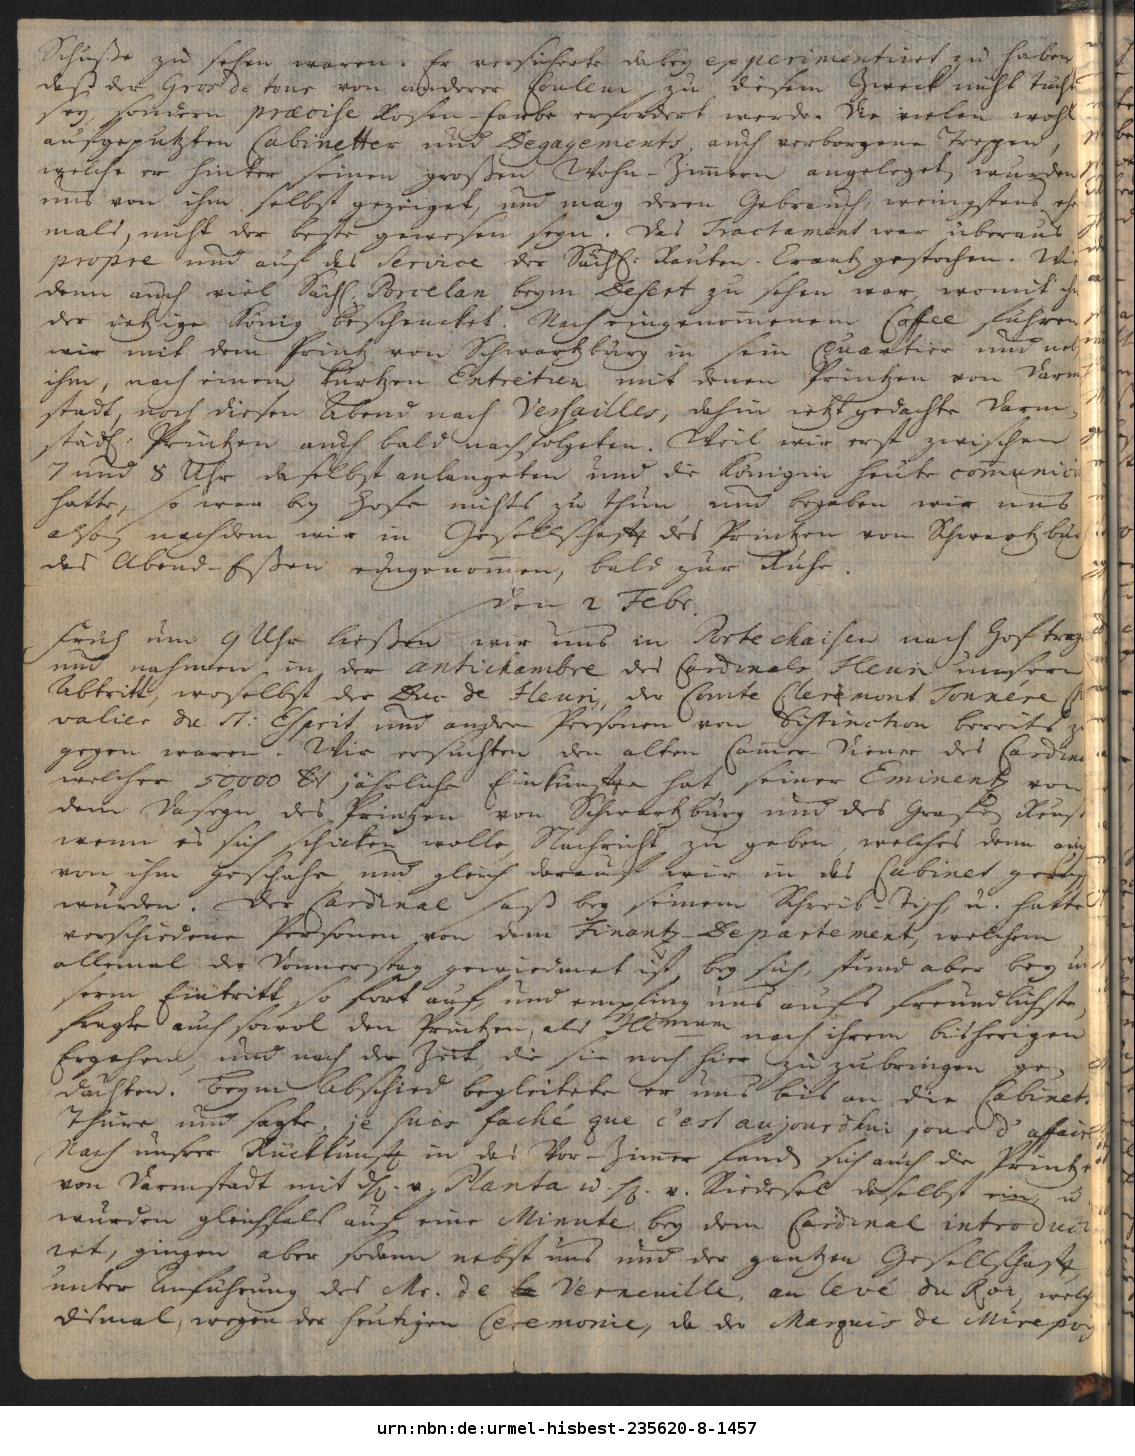 Schuße zu sehen waren. Er versicherte dabey experimentiret zu haben
daß der Gros de tour von anderer Couleur zu diesem Zweck nicht tücht
sey, sondern præcise Rosen-farbe erfordert werde. Die vielen wohl
aufgeputzten Cabinetter und Degagements, auch verborgene Treppen,
welche er hinter seinen großen Wohn-Zimmern angeleget, wurden
uns von ihm selbst gezeiget, und mag deren Gebrauch, wenigstens ehe
mals, nicht der beste gewesen seyn. Das Tractament war überaus
propre und auf das Service der Sächs: Rauten-Crantz gestochen. Wie
denn auch viel Sächs. Porcelan beym Desert zu sehen war, womit ihn
der ietzige König beschencket. Nach eingenommenem Coffee fuhren
wir mit dem Printz von Schwartzburg in sein Quartier und neb
ihm, nach einem kurtzen Entretien mit denen Printzen von Darm
stadt, noch diesen Abend nach Versailles, dahin ietzt gedachte Darm-
städ: Printzen auch bald nachfolgeten. Weil wir erst zwischen
7 und 8 Uhr daselbst anlangeten und die Königin heute communici
hatte, so war bey Hofe nichts zu thun, und begaben wir uns
also, nachdem wir in Gesellschafft des Printzen von Schwartzbur
das Abend-Eßen eingenommen, bald zur Ruhe.
den 2 Febr.
Früh um 9 Uhr ließen wir uns in Portechaisen nach Hof trag
und nahmen in der antichambre des Cardinals Fleuri unsern
Abtritt, woselbst der Duc de Fleuri, der Comte Clermont Tonnere
valier du St: Esprit und andere Personen von Distinction bereits zu
gegen waren. Wir ersuchten den alten Cammer-Diener des Cardin
welcher 50000 jährliche Einkünffte hat, seiner Eminentz von
dem Daseyn des Printzen von Schwartzburg und des Grafen Reuß
wenn es sich schicken wolle, Nachricht zu geben, welches denn auch
von ihm geschahe, und gleich darauf wir in das Cabinet
wurden. Der Cardinal saß bey seinem Schreib-Tisch, u. hatte
verschiedene Personen von dem Finantz-Departement, welchem
allemal der Donnerstag gewiedmet ist, bey sich, stund aber bey un
serm Eintritt so fort auf, und empfing uns aufs freundlichste,
fragte auch sowol den Printzen, als nach ihrem bisherigen
Ergehen, und nach der Zeit, die sie noch hier zuzubringen ge-
dächten. Beym Abschied begleitete er uns bis an die Cabinet
Thüre und sagte, je suis faché que c'est aujourdhui jour d'affair
Nach unsrer Rückkunfft in das Vor-Zimmer fand sich auch die Printze
von Darmstadt mit H. v. Planta u. H. v. Riedesel daselbst ein, u
wurden gleichfals auf eine Minute bey dem Cardinal introduci
ret, gingen aber sodann nebst uns und der gantzen Gesellschafft,
unter Anführung des Mr. de Verneuille, au levé du Roi, welch
dismal, wegen der heutigen Ceremonie, da der Marquis de Mirepoi